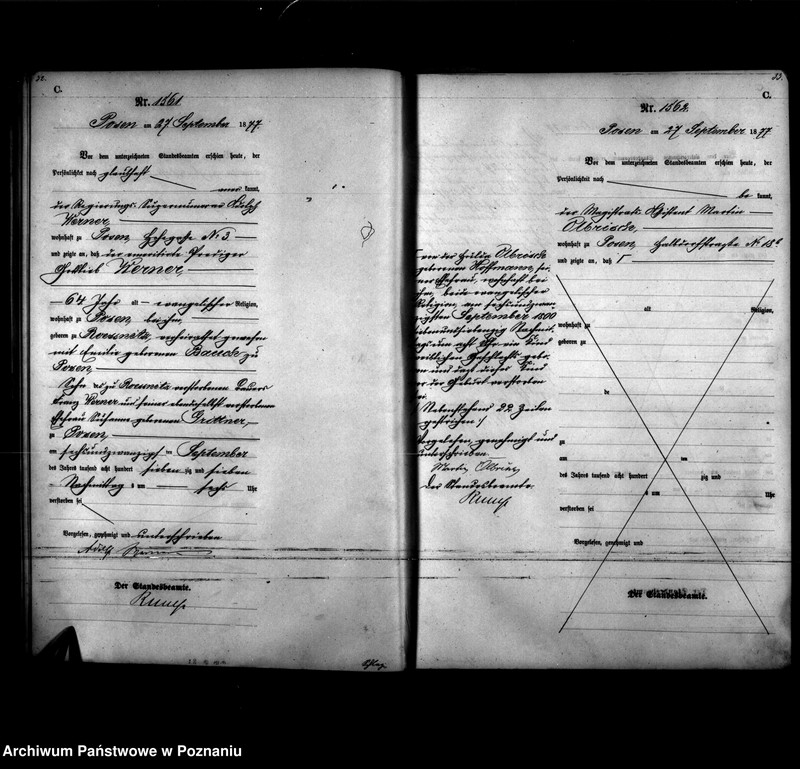 32.
C.
Nr. 1561.
Posen am 27 September 1877.
Vor dem unterzeichneten Standesbeamten erschien heute, der
Persönlichkeit nach
kannt,
der Regierungs-Supernumerar Adolph
Werner
wohnhaft zu Posen, № 3
und zeigte an, daß der emeritirte Prediger
Gottlieb Werner
64 Jahr alt evangelischer Religion,
wohnhaft zu Posen, bei ihm,
geboren zu verheirathet gewesen
mit Emilie geborenen zu
Posen
Sohn des zu verstorbenen
Franz Werner und seiner ebendaselbst verstorbenen
Ehefrau Susanne geborenen
zu Posen,
am sechsundzwanzigsten September
des Jahres tausend acht hundert sieben zig und sieben
Nachmittag s um sechs Uhr
verstorben sei
Vorgelesen, genehmigt und unterschrieben
Adolph Werner
Der Standesbeamte.
33.
C.
Nr. 1562.
Posen am 27 September 1877
Vor dem unterzeichneten Standesbeamten erschien heute, der
Persönlichkeit nach
be kannt,
der Magistrats-Assistent Martin
wohnhaft zu Posen,
und zeigte an, daß
von der Hulda
geborenen Hoffmann, seiner
Ehefrau, wohnhaft bei
ihm, beide evangelischer
Religion, am sechsundzwanzigsten
September 1800
siebenundsiebenzig Nachmittags
um acht Uhr ein Kind
weiblichen Geschlechts geboren
und daß dieses Kind
in der Geburt verstorben
sei.
Nebenstehend 22 Zeilen
gestrichen.
Vorgelesen, genehmigt und
unterschrieben.
Martin
Der Standesbeamte.
alt Religion,
wohnhaft zu
geboren zu
zu
am
des Jahres tausend acht hundert zig und
s um Uhr
verstorben sei
Vorgelesen, genehmigt und
Der Standesbeamte.
Archiwum Państwowe w Poznaniu